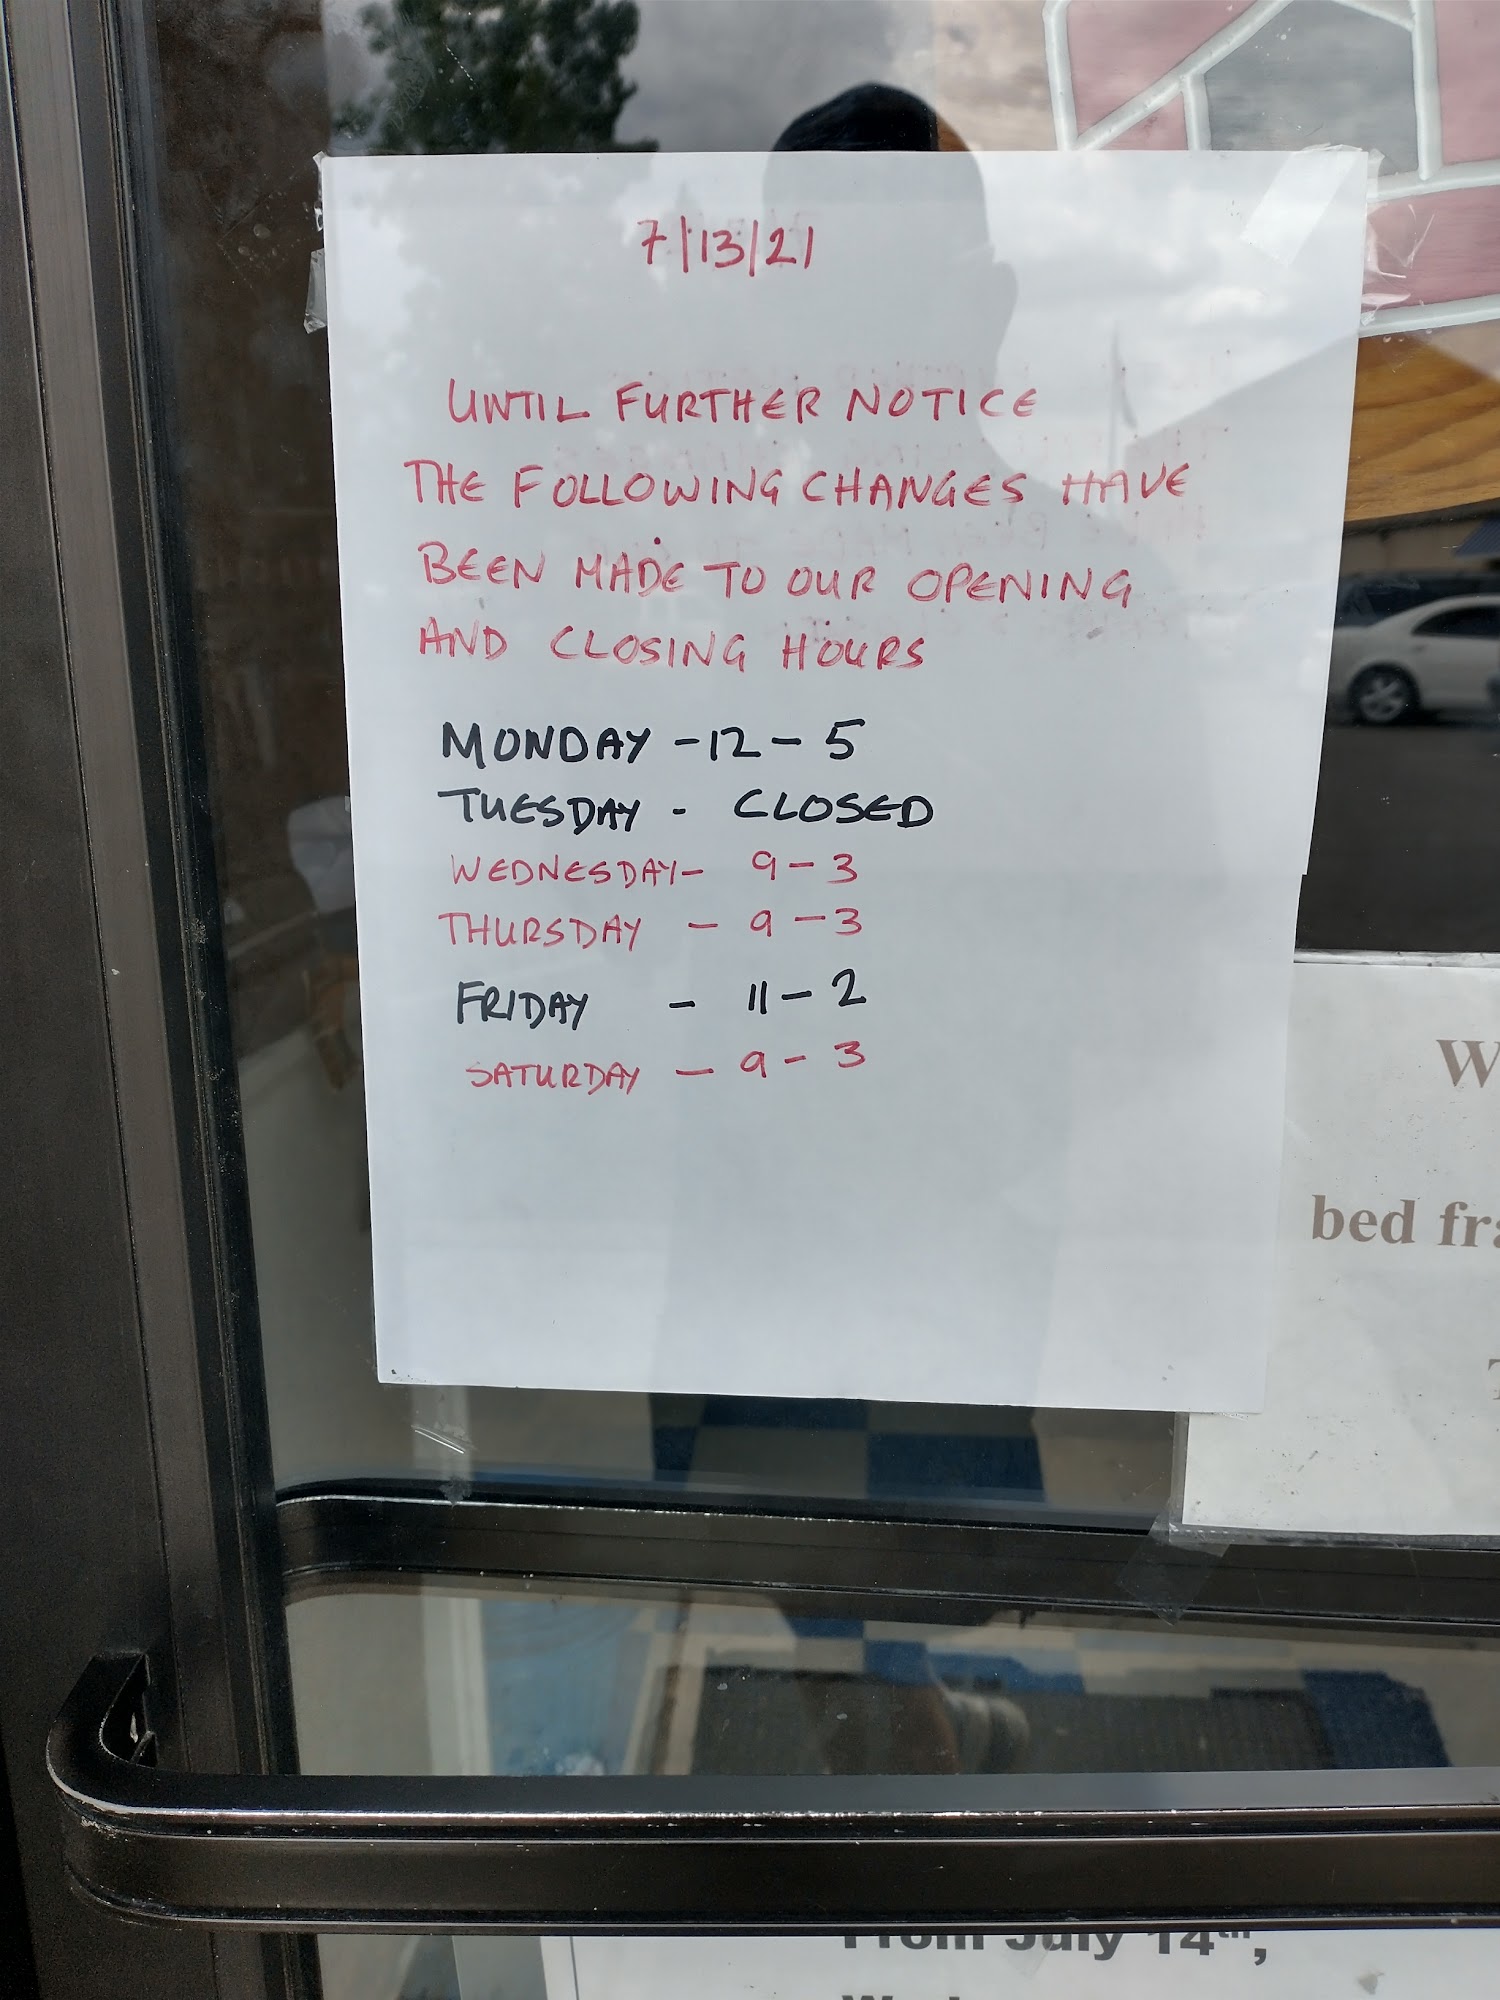 7/13/21
UNTIL FURTHER NOTICE
THE FOLLOWING CHANGES HAVE
BEEN MADE TO OUR OPENING
AND CLOSING HOURS
MONDAY - 12 - 5
TUESDAY - CLOSED
WEDNESDAY - 9 - 3
THURSDAY - 9 - 3
FRIDAY - 11 - 2
SATURDAY - 9 - 3
W
bed fra
From July 14th,